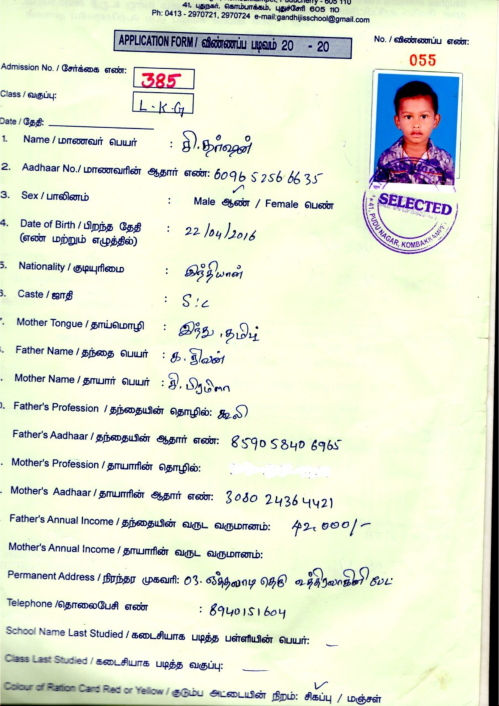 41, புதுநகர், கொம்பாக்கம், புதுச்சேரி 605 110
Ph: 0413 - 2970721, 2970724 e-mail:gandhijisschool@gmail.com
APPLICATION FORM / விண்ணப்ப படிவம் 20 - 20
No. / விண்ணப்ப எண்:
055
Admission No. / சேர்க்கை எண்: 385
Class / வகுப்பு: L.K.G
Date / தேதி:
SELECTED
41, PUDU NAGAR, KOMBAKKAM
1. Name / மாணவர் பெயர் : சி. தர்ஷன்
2. Aadhaar No./ மாணவரின் ஆதார் எண்: 6096 5256 6635
3. Sex / பாலினம் Male ஆண் / Female பெண்
4. Date of Birth / பிறந்த தேதி : 22/04/2016
(எண் மற்றும் எழுத்தில்)
5. Nationality / குடியுரிமை : இந்தியன்
6. Caste / ஜாதி : S:C
Mother Tongue / தாய்மொழி : இந்து, தமிழ்
Father Name / தந்தை பெயர் : க. சிவன்
Mother Name / தாயார் பெயர் : சி. பிரமிளா
Father's Profession / தந்தையின் தொழில்: கூலி
Father's Aadhaar / தந்தையின் ஆதார் எண்: 8590 5840 6965
Mother's Profession / தாயாரின் தொழில்:
Mother's Aadhaar / தாயாரின் ஆதார் எண்: 3080 2436 4421
Father's Annual Income / தந்தையின் வருட வருமானம்: 42,000/-
Mother's Annual Income / தாயாரின் வருட வருமானம்:
Permanent Address / நிரந்தர முகவரி: 03. தெரு பேட்
Telephone /தொலைபேசி எண் : 8940151604
School Name Last Studied / கடைசியாக படித்த பள்ளியின் பெயர்: _
Class Last Studied / கடைசியாக படித்த வகுப்பு: _
Colour of Ration Card Red or Yellow / குடும்ப அட்டையின் நிறம்: சிகப்பு / மஞ்சள்